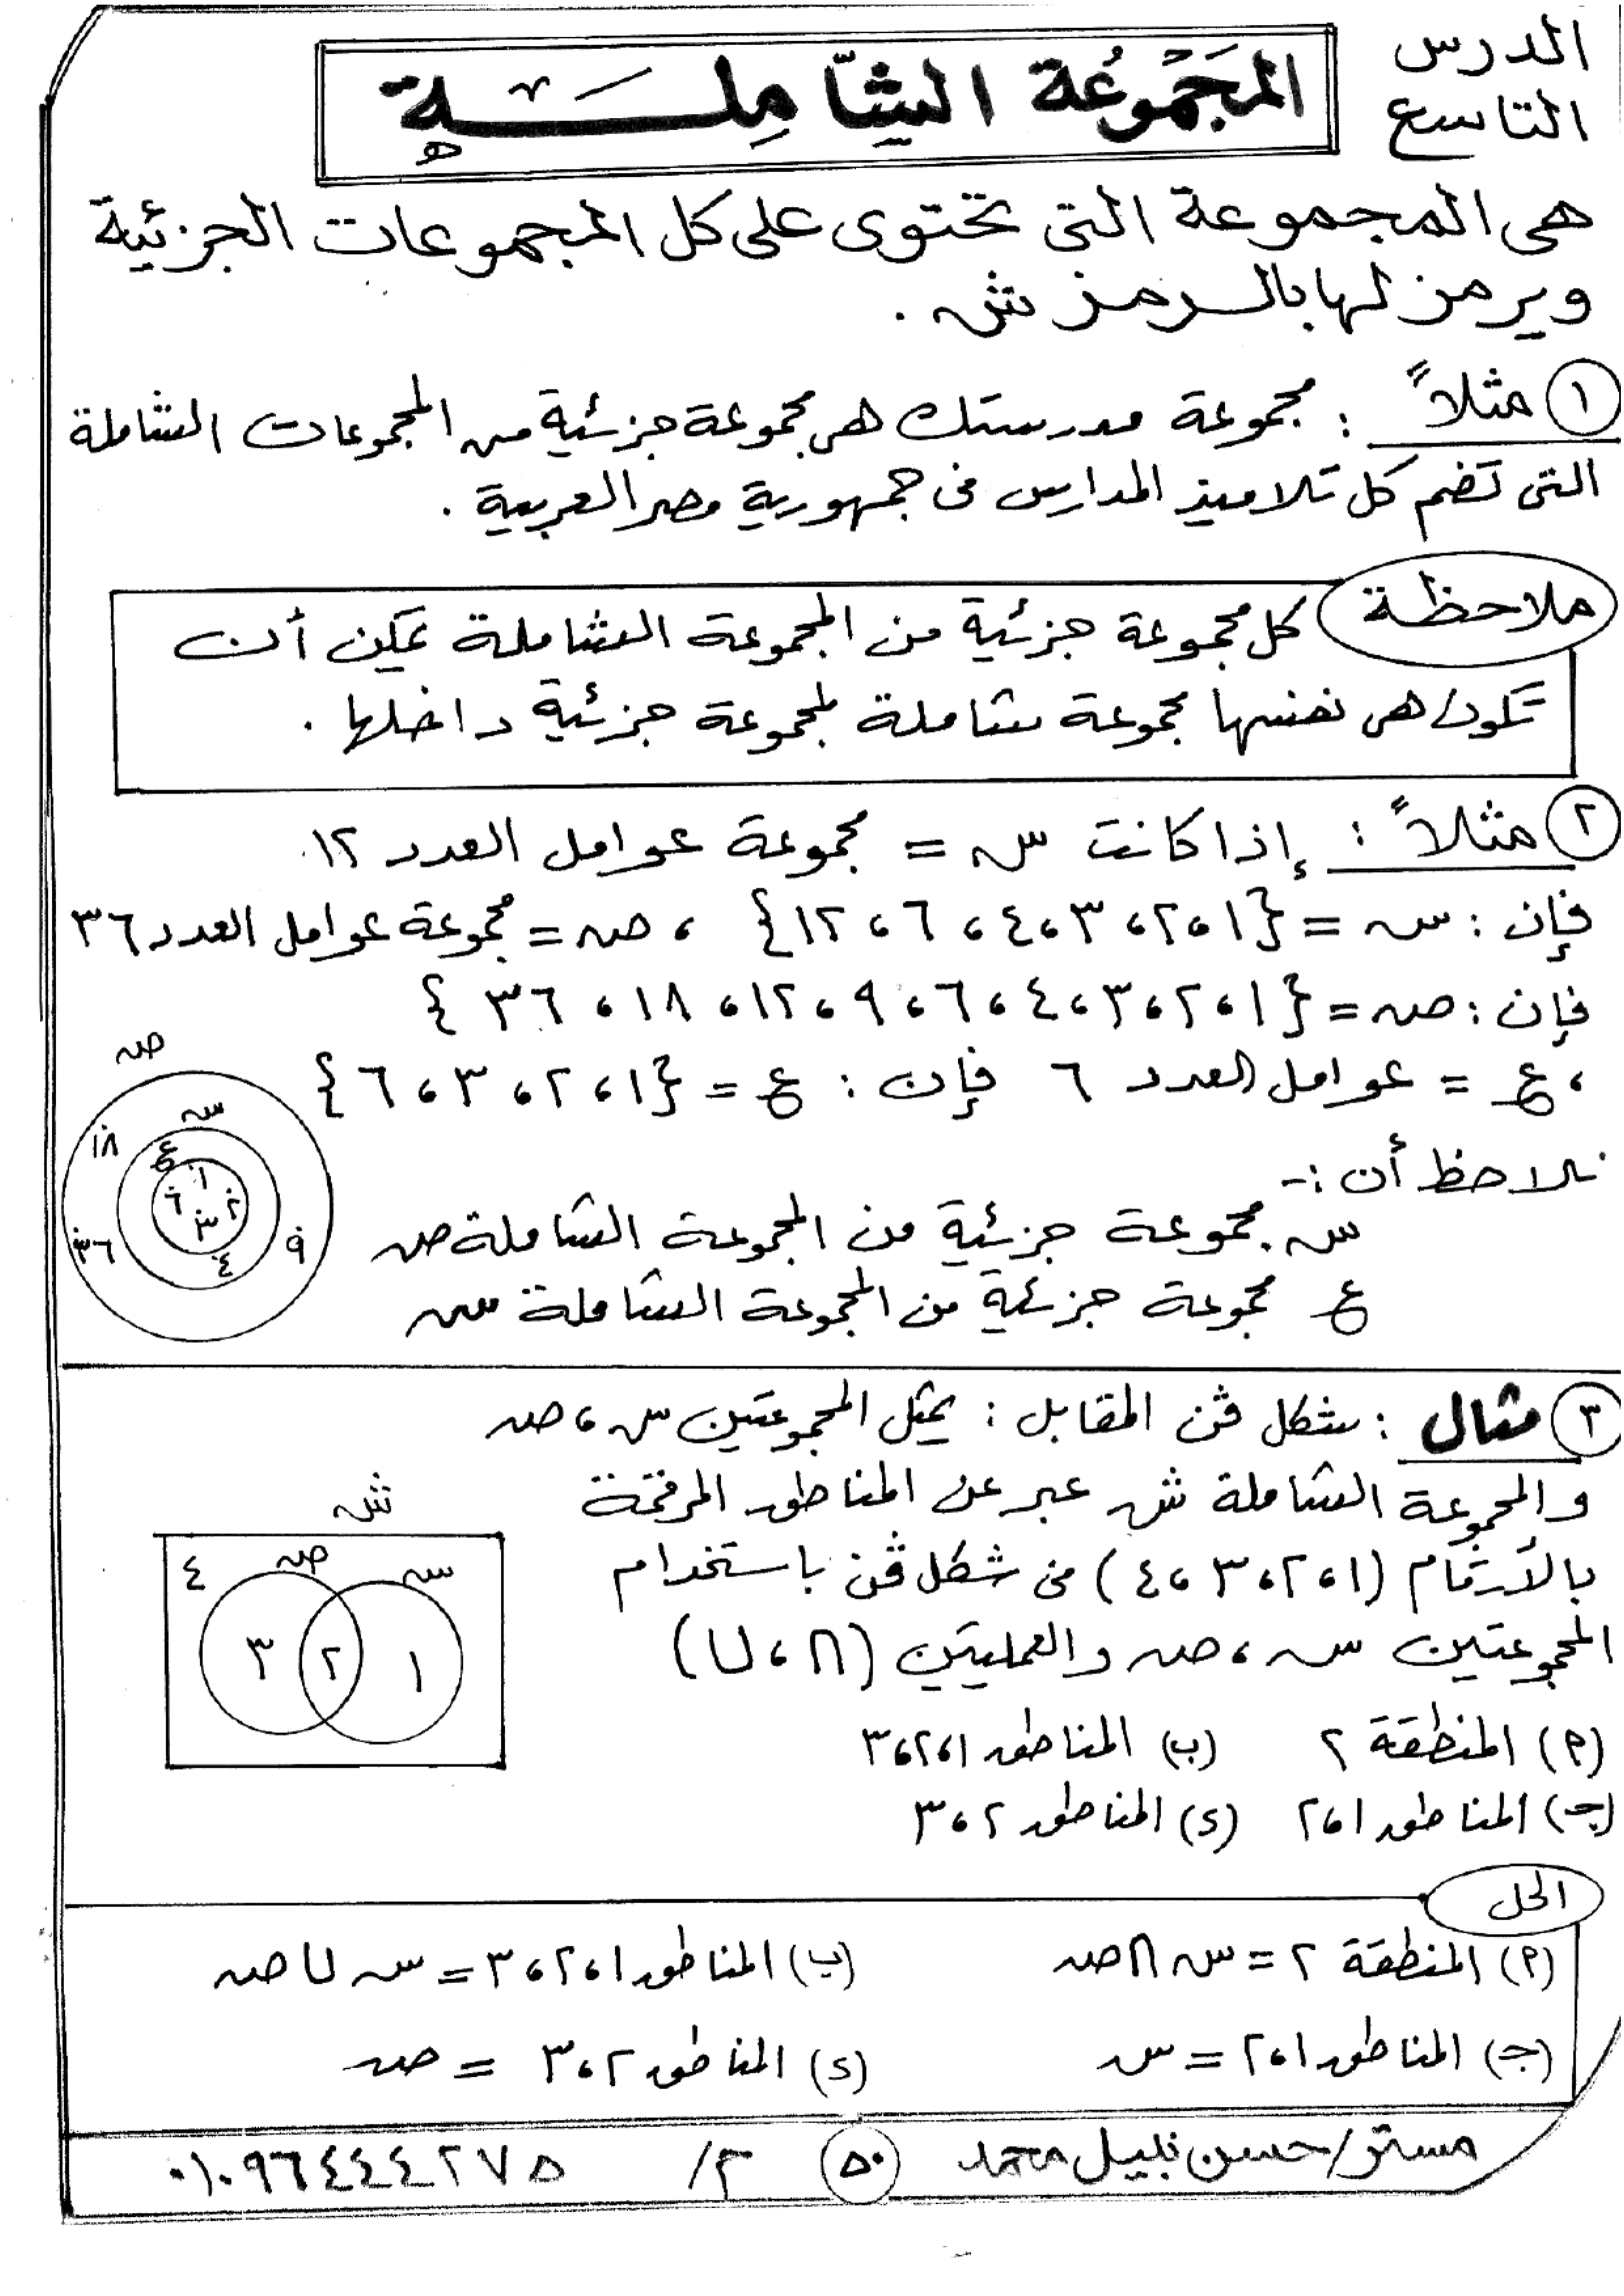 الدرس
التاسع
المَجَمُوُعَة الشّامِلَـة
هى المجموعة التى تحتوى على كل المجموعات الجزئية
ويرمز لها بالرمز ش .
١ مثلاً : مجموعة مدرستك هى مجموعة جزئية من المجموعات الشاملة
التى تضم كل تلاميذ المدارس فى جمهورية مصر العربية .
ملاحظة كل مجموعة جزئية من المجموعة الشاملة يمكن أن
تكون هى نفسها مجموعة شاملة لمجموعة جزئية داخلها .
٢ مثلاً : إذا كانت س = مجموعة عوامل العدد ١٢
فإن : س = {١ ، ٢ ، ٣ ، ٤ ، ٦ ، ١٢} ، ص = مجموعة عوامل العدد ٣٦
فإن : ص = {١ ، ٢ ، ٣ ، ٤ ، ٦ ، ٩ ، ١٢ ، ١٨ ، ٣٦}
، ع = عوامل العدد ٦ فإن : ع = {١ ، ٢ ، ٣ ، ٦}
ص
س
ع
١٨
١
٦
٢
٣
٣٦
٩
٤
نلاحظ أن :-
س مجموعة جزئية من المجموعة الشاملة ص
ع مجموعة جزئية من المجموعة الشاملة س
٣ مثال : شكل ڤن المقابل : يمثل المجموعتين س ، ص
والمجموعة الشاملة ش عبر عن المناطق المرقمة
بالأرقام (١ ، ٢ ، ٣ ، ٤) فى شكل ڤن باستخدام
المجموعتين س ، ص والعمليتين (∩ ، ∪)
ش
٤
ص
س
٣
٢
١
(٢) المنطقة ٢ (ب) المناطق ١ ، ٢ ، ٣
(جـ) المناطق ١ ، ٢ (د) المناطق ٢ ، ٣
الحل
(٢) المنطقة ٢ = س ∩ ص (ب) المناطق ١ ، ٢ ، ٣ = س ∪ ص
(جـ) المناطق ١ ، ٢ = س (د) المناطق ٢ ، ٣ = ص
مستر/حسن نبيل محمد ٥٠ م/ ٠١٠٩٦٤٤٤٢٧٥